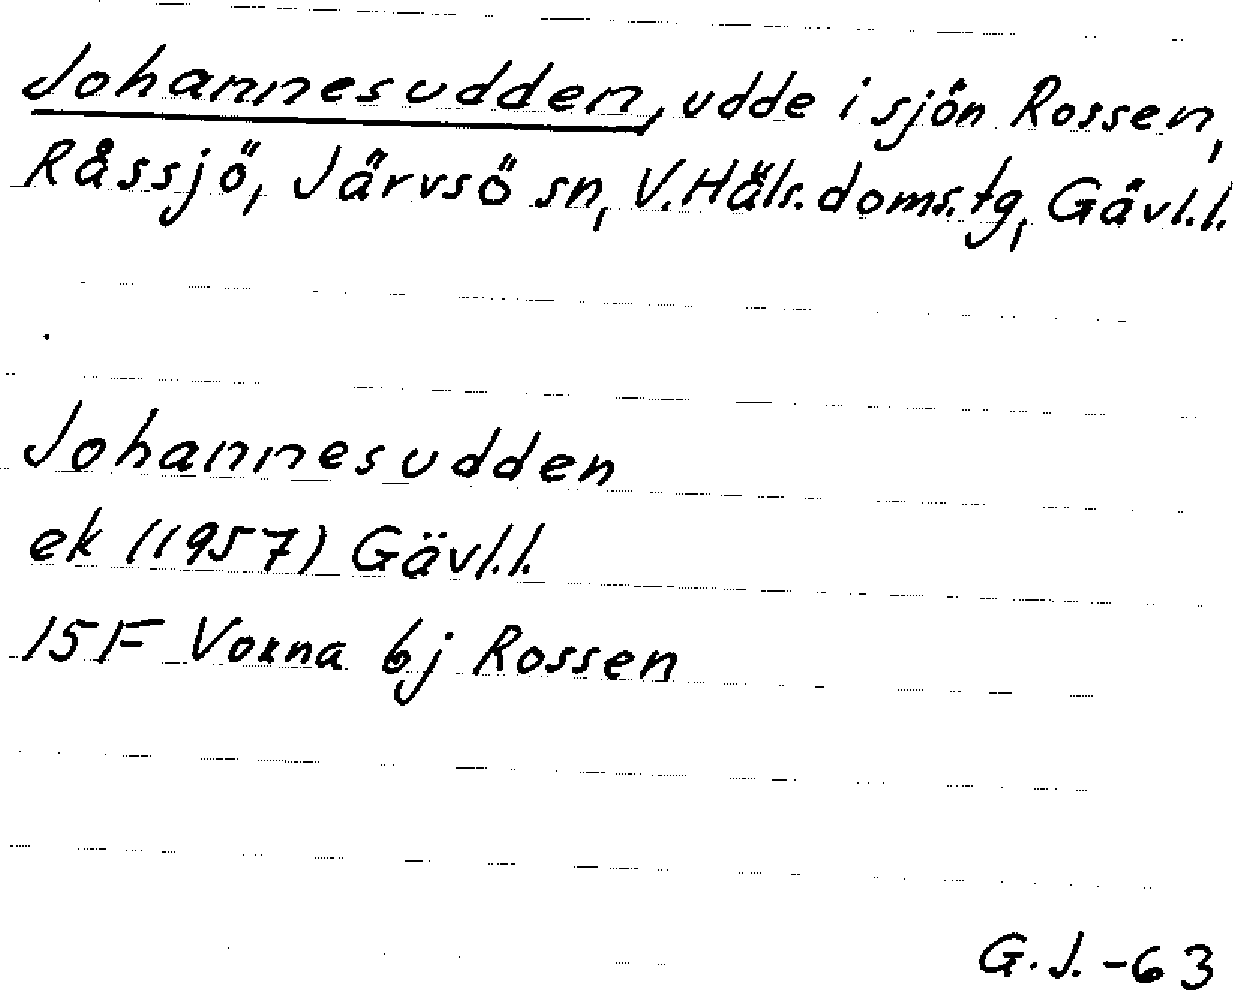 Johannesudden, udde i sjön Rossen,
Råssjö, Järvsö sn, V.Häls.doms.tg, Gävl.l.
Johannesudden
ek (1957) Gävl.l.
15F Voxna 6j Rossen
G.J.-63